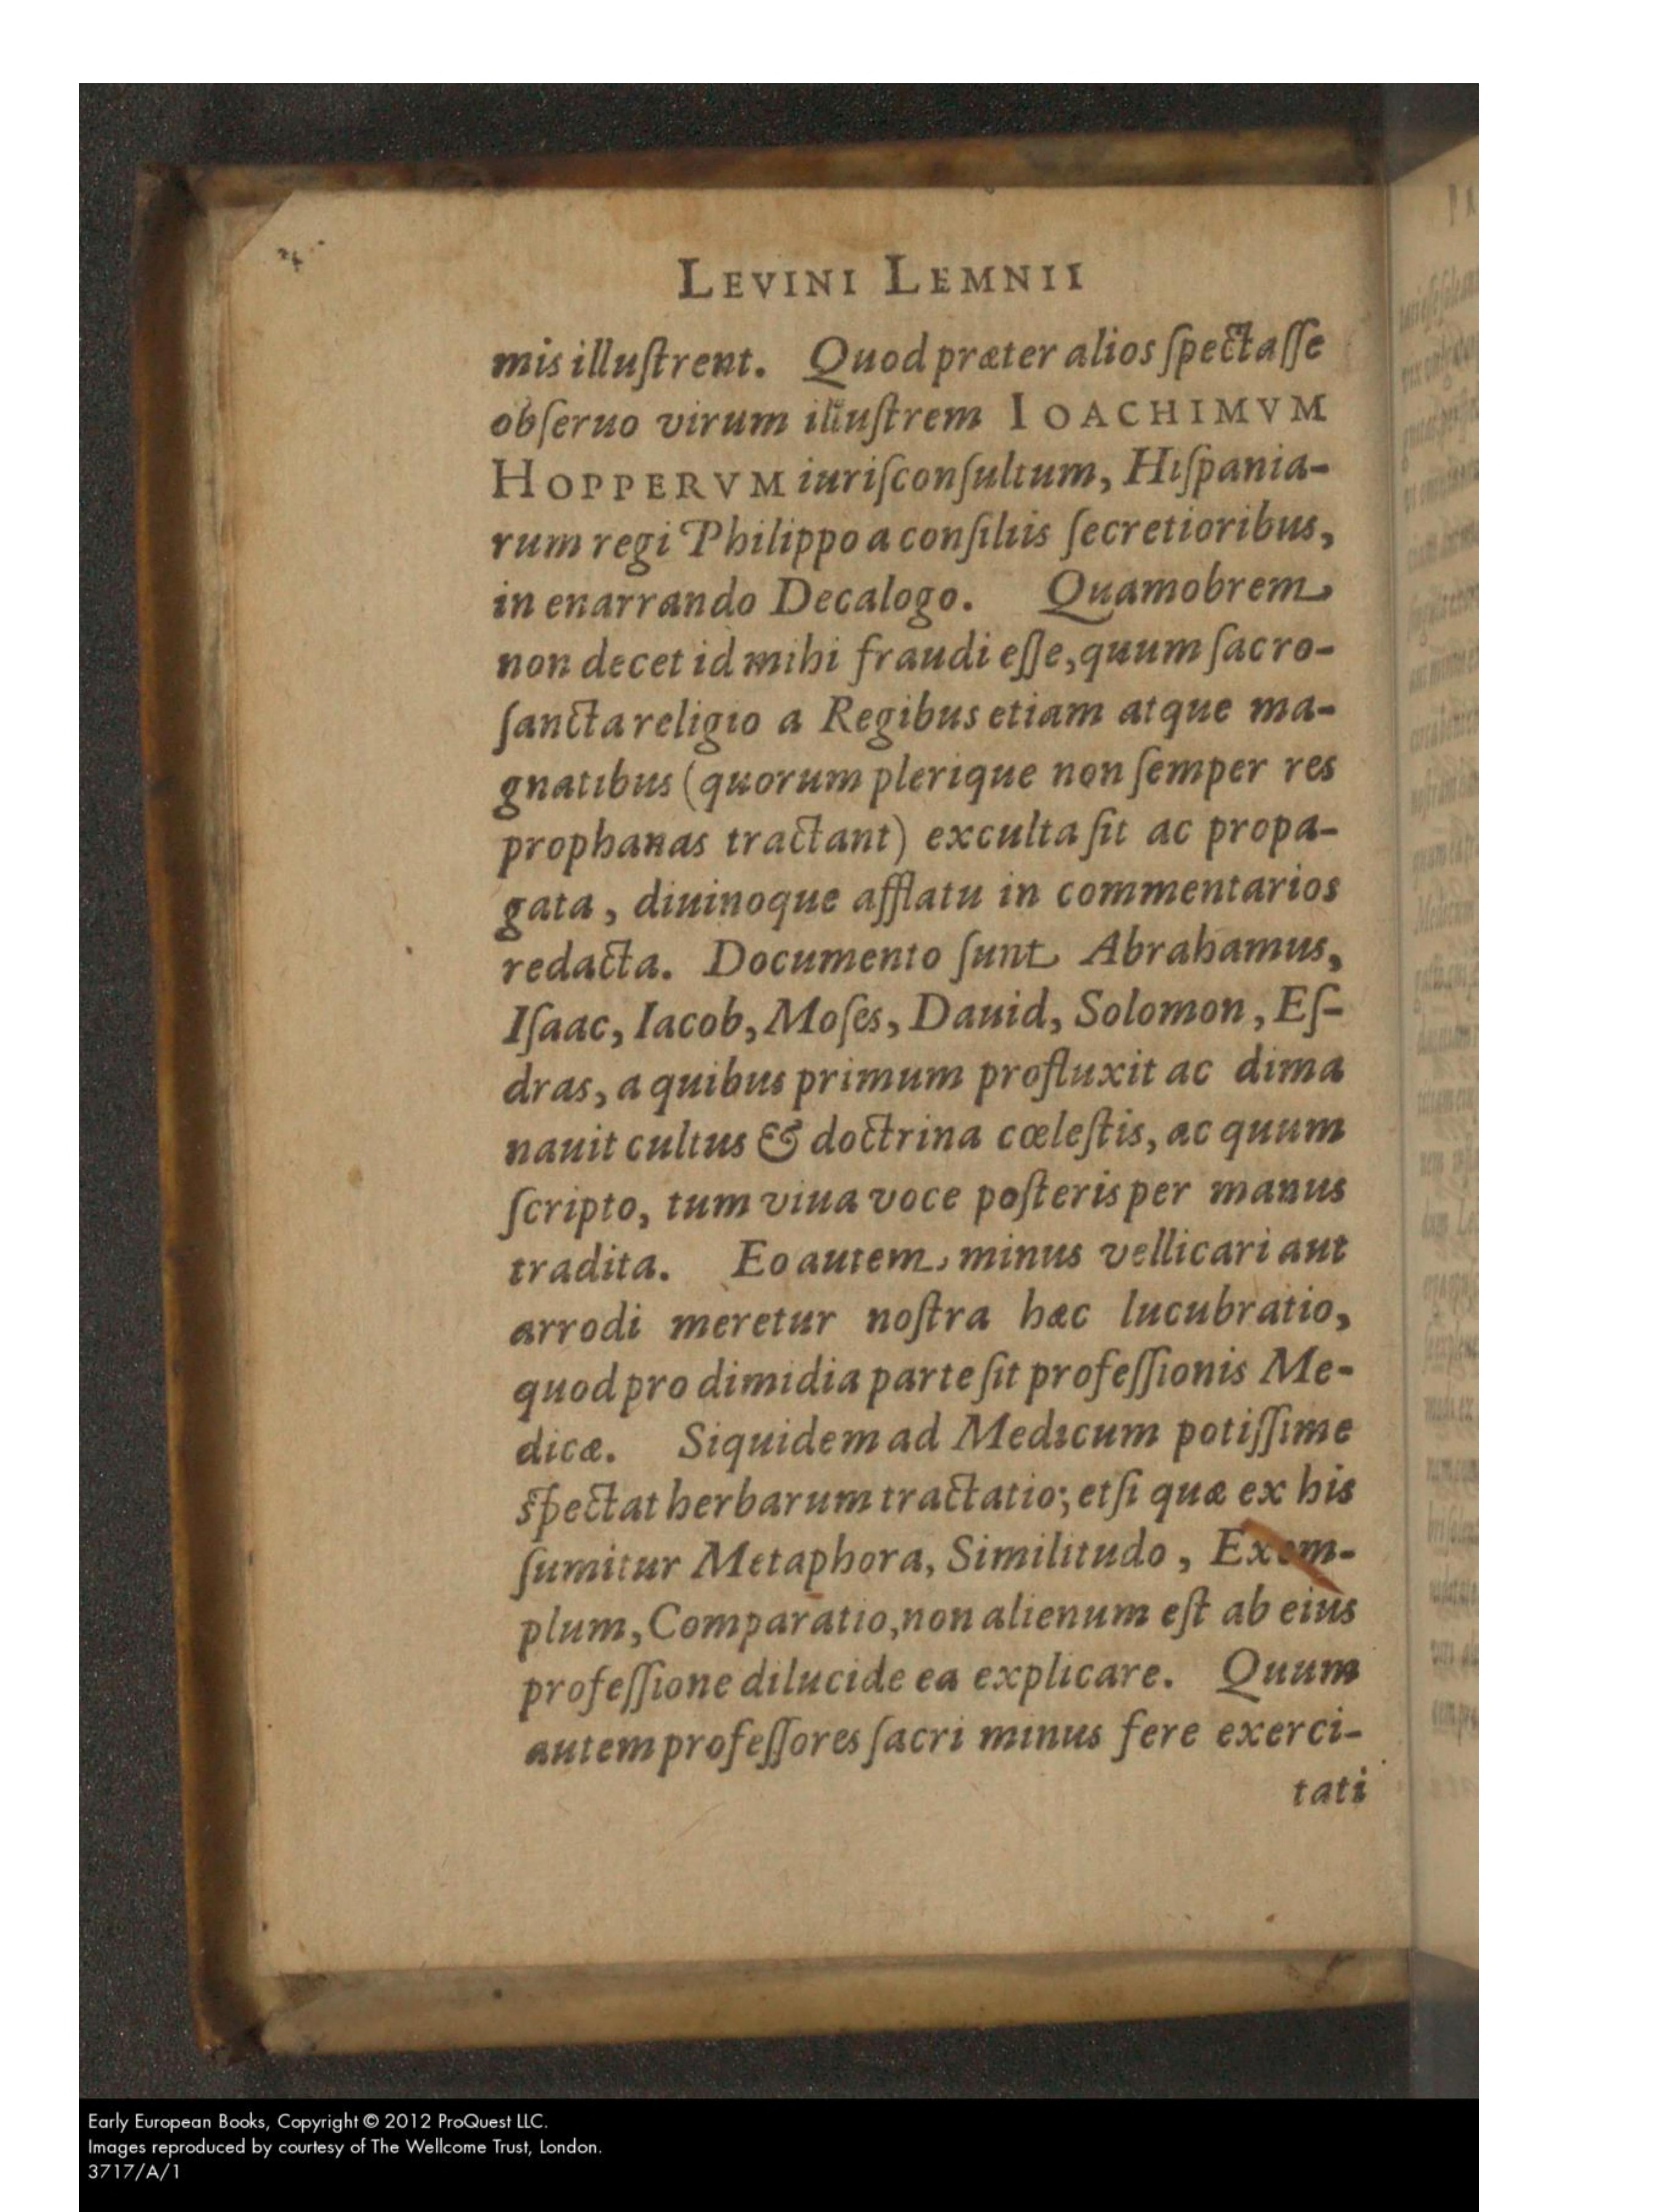 LEVINI LEMNII
mis illuſtrent. Quod præter alios ſpectaſſe
obſeruo virum illuſtrem IOACHIMVM
HOPPERVM iuriſconſultum, Hiſpania-
rum regi Philippo a conſiliis ſecretioribus,
in enarrando Decalogo. Quamobrem
non decet id mihi fraudi eſſe, quum ſacro-
ſancta religio a Regibus etiam atque ma-
gnatibus (quorum plerique non ſemper res
prophanas tractant) exculta ſit ac propa-
gata, diuinoque afflatu in commentarios
redacta. Documento ſunt Abrahamus,
Iſaac, Iacob, Moſes, Dauid, Solomon, Eſ-
dras, a quibus primum profluxit ac dima
nauit cultus & doctrina cœleſtis, ac quum
ſcripto, tum viua voce poſteris per manus
tradita. Eo autem minus vellicari aut
arrodi meretur noſtra hæc lucubratio,
quod pro dimidia parte ſit profeſſionis Me-
dicæ. Siquidem ad Medicum potiſſime
ſpectat herbarum tractatio; etſi quæ ex his
ſumitur Metaphora, Similitudo, Exem-
plum, Comparatio, non alienum eſt ab eius
profeſſione dilucide ea explicare. Quum
autem profeſſores ſacri minus fere exerci-
tati
Early European Books, Copyright © 2012 ProQuest LLC.
Images reproduced by courtesy of The Wellcome Trust, London.
3717/A/1